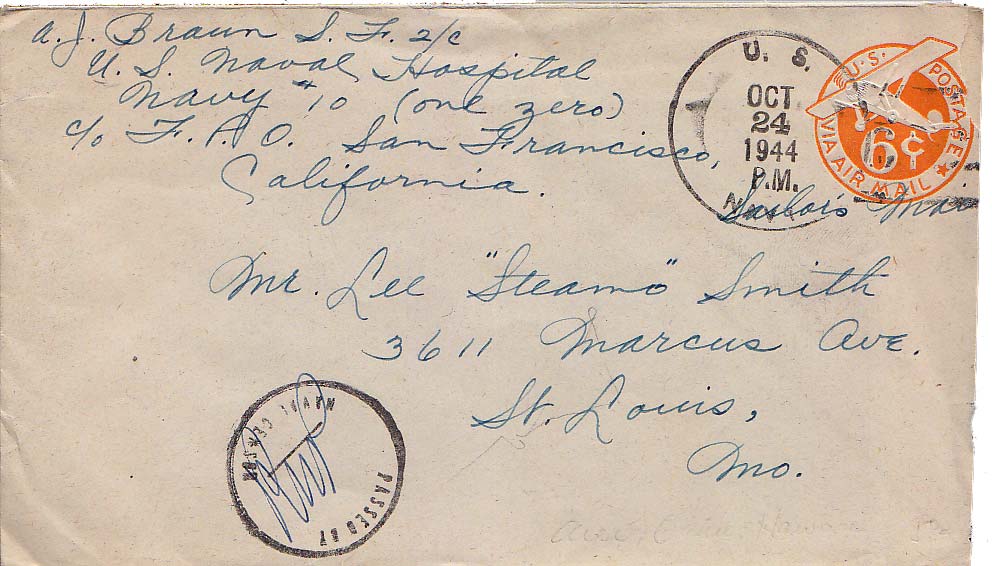 A. J. Braun S. F. 2/c
U. S. Naval Hospital
Navy #10 (one zero)
c/o F. P. O. San Francisco,
California.
U. S.
OCT
24
1944
P.M.
NAVY
U.S. POSTAGE
6¢
VIA AIR MAIL
Sailor's Mail
Mr. Lee "Steamo" Smith
3611 Marcus Ave.
St. Louis,
Mo.
PASSED BY
NAVAL CENSOR